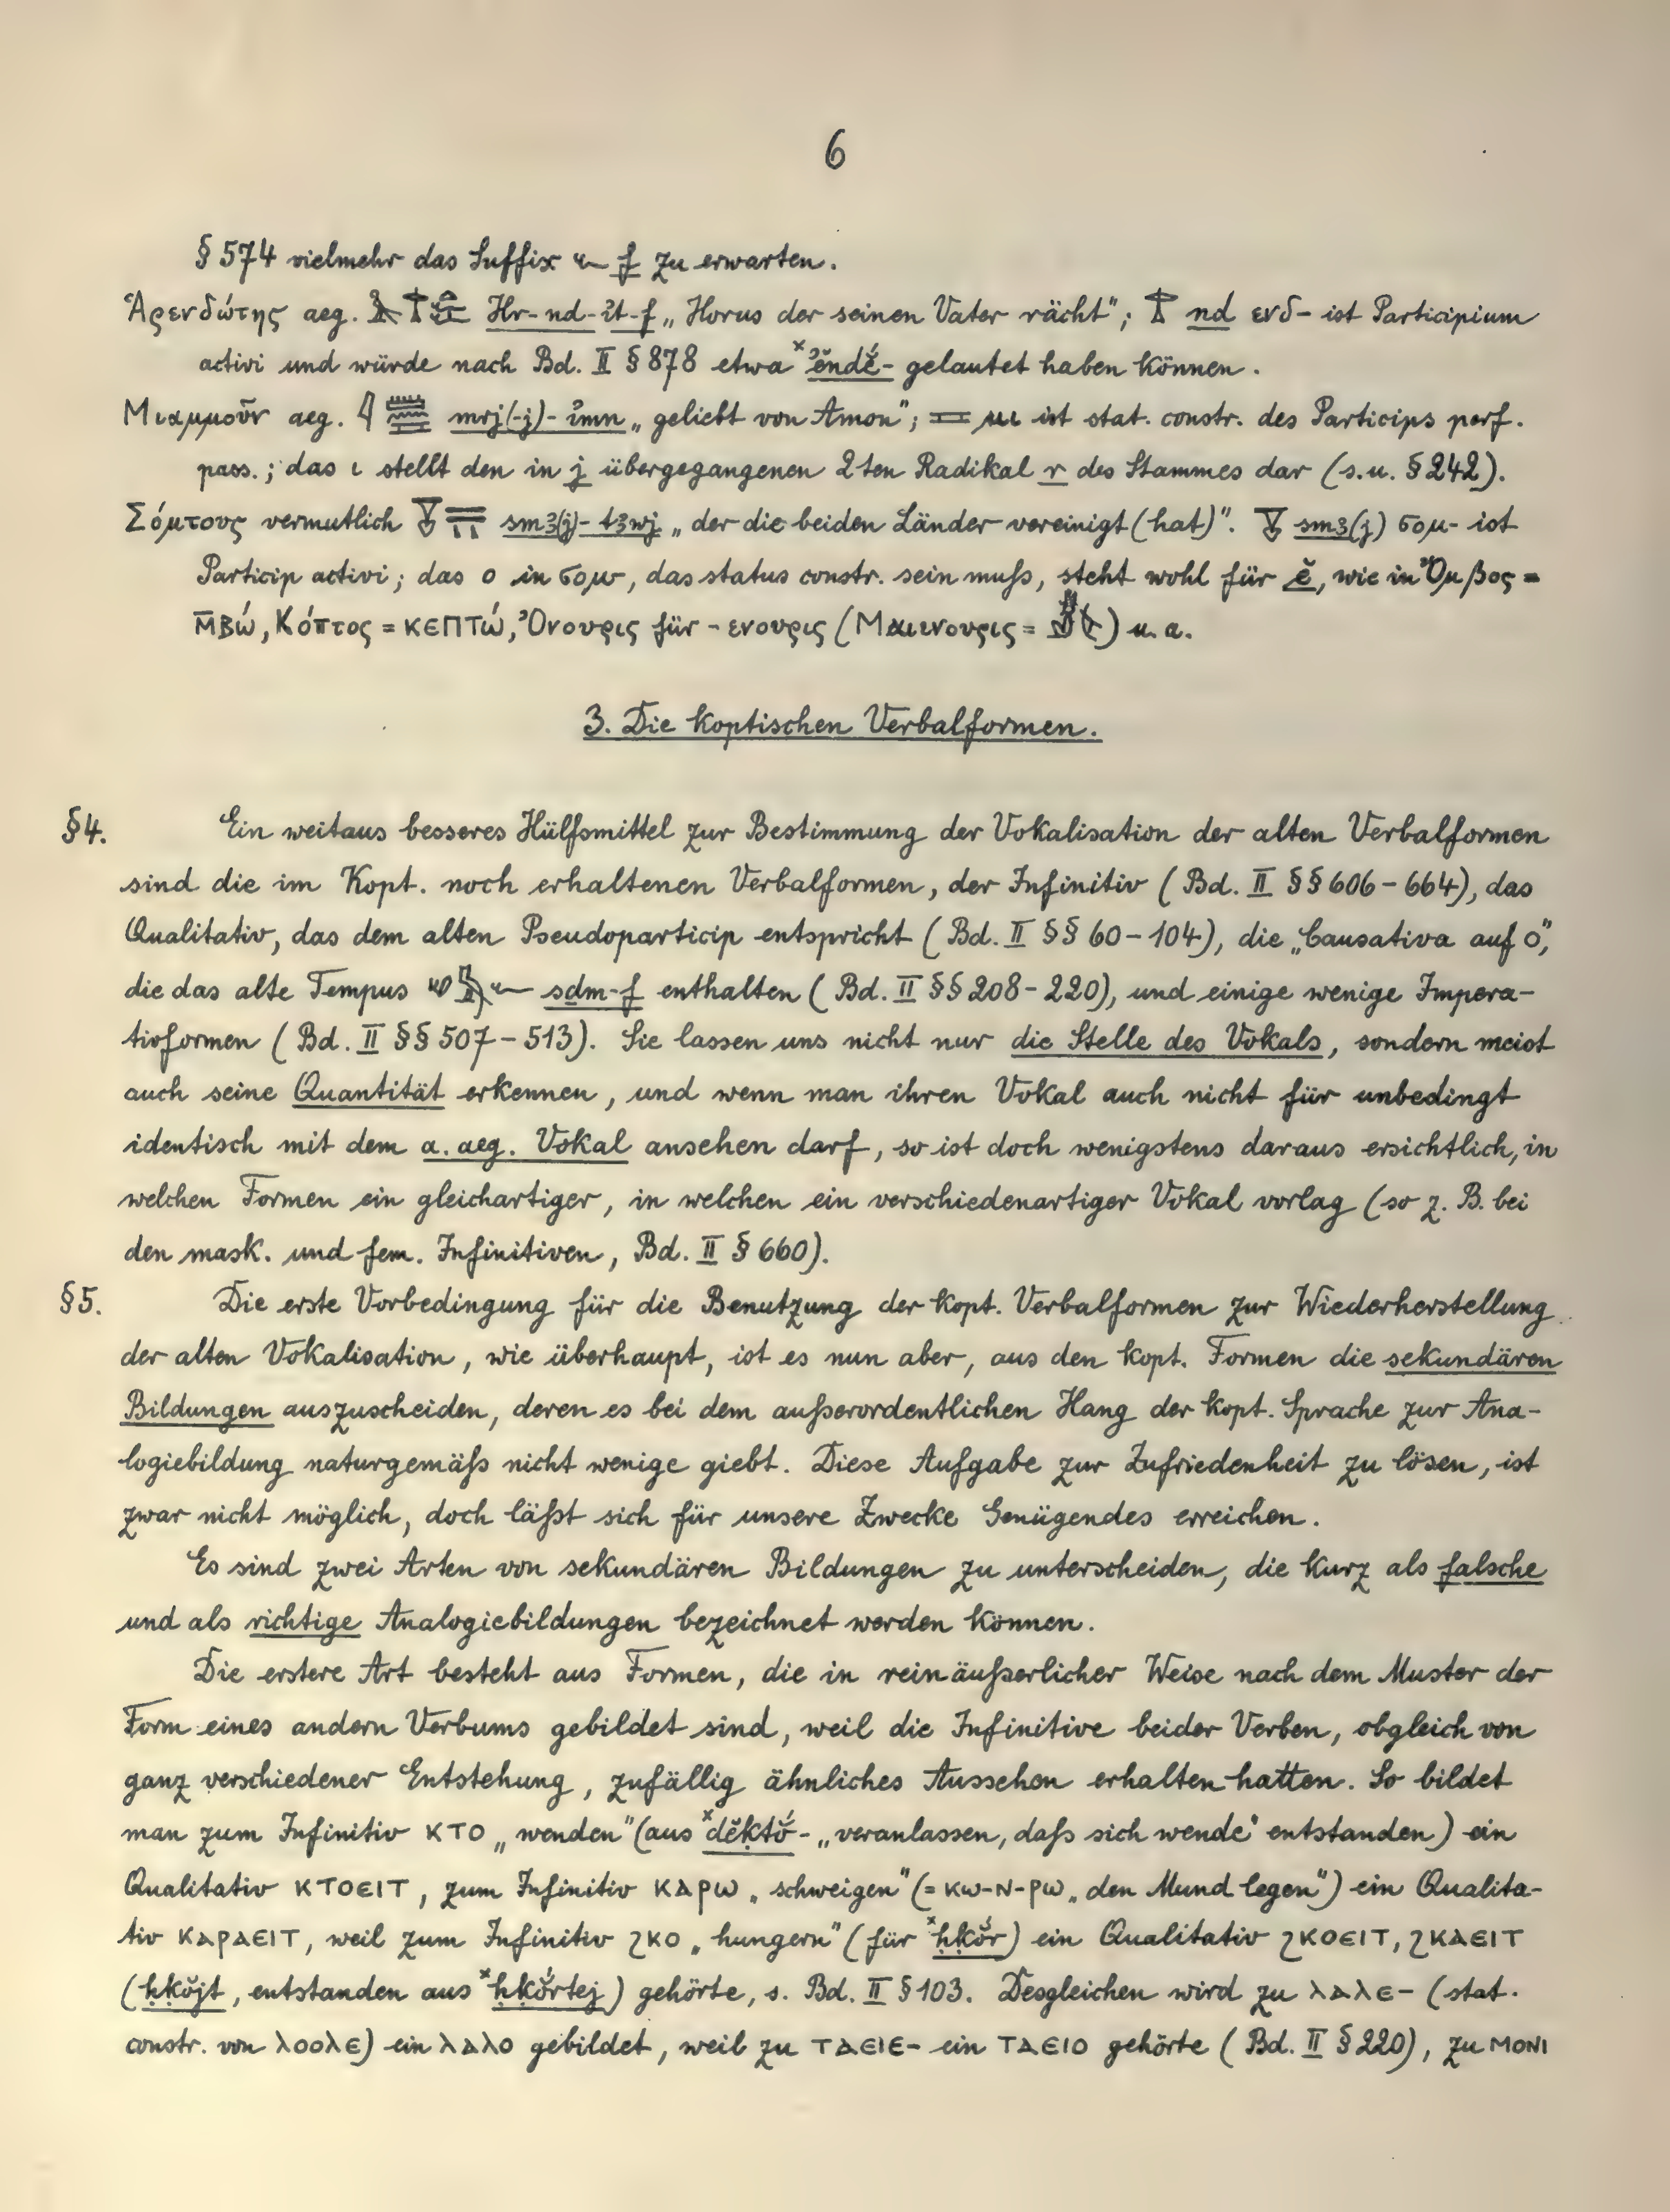 6
§ 574 vielmehr das Suffix f zu erwarten.
Ἁρενδώτης aeg. Ḥr-nḏ-ı͗t-f „Horus der seinen Vater rächt"; nḏ ενδ- ist Participium
activi und würde nach Bd. II § 878 etwa ˣ ʾĕndĕ́- gelautet haben können.
Μιαμμοῦν aeg. mrj(-j)-ı͗mn „geliebt von Amon"; μι ist stat. constr. des Particips perf.
pass.; das ι stellt den in j übergegangenen 2ten Radikal r des Stammes dar (s. u. § 242).
Σόμτους vermutlich sm3(j)-t3wj „der die beiden Länder vereinigt (hat)". sm3(j) σομ- ist
Particip activi; das o in σομ, das status constr. sein muſs, steht wohl für ĕ, wie in Ὄμβος =
ⲘⲂⲰ́, Κόπτος = ⲔⲈⲠⲦⲰ́, Ὀνουρις für -ενουρις (Μαιενουρις = ) u. a.
3. Die koptischen Verbalformen.
§4. Ein weitaus besseres Hülfsmittel zur Bestimmung der Vokalisation der alten Verbalformen
sind die im Kopt. noch erhaltenen Verbalformen, der Infinitiv (Bd. II §§ 606-664), das
Qualitativ, das dem alten Pseudoparticip entspricht (Bd. II §§ 60-104), die „Causativa auf o",
die das alte Tempus sḏm-f enthalten (Bd. II §§ 208-220), und einige wenige Impera-
tivformen (Bd. II §§ 507-513). Sie lassen uns nicht nur die Stelle des Vokals, sondern meist
auch seine Quantität erkennen, und wenn man ihren Vokal auch nicht für unbedingt
identisch mit dem a. aeg. Vokal ansehen darf, so ist doch wenigstens daraus ersichtlich, in
welchen Formen ein gleichartiger, in welchen ein verschiedenartiger Vokal vorlag (so z. B. bei
den mask. und fem. Infinitiven, Bd. II § 660).
§5. Die erste Vorbedingung für die Benutzung der kopt. Verbalformen zur Wiederherstellung
der alten Vokalisation, wie überhaupt, ist es nun aber, aus den kopt. Formen die sekundären
Bildungen auszuscheiden, deren es bei dem auſserordentlichen Hang der kopt. Sprache zur Ana-
logiebildung naturgemäſs nicht wenige giebt. Diese Aufgabe zur Zufriedenheit zu lösen, ist
zwar nicht möglich, doch läſst sich für unsere Zwecke Genügendes erreichen.
Es sind zwei Arten von sekundären Bildungen zu unterscheiden, die kurz als falsche
und als richtige Analogiebildungen bezeichnet werden können.
Die erstere Art besteht aus Formen, die in rein äuſserlicher Weise nach dem Muster der
Form eines andern Verbums gebildet sind, weil die Infinitive beider Verben, obgleich von
ganz verschiedener Entstehung, zufällig ähnliches Aussehen erhalten hatten. So bildet
man zum Infinitiv ⲔⲦⲞ „wenden" (aus ˣdĕktŏ́- „veranlassen, daſs sich wende" entstanden) ein
Qualitativ ⲔⲦⲞⲈⲒⲦ, zum Infinitiv ⲔⲀⲢⲰ „schweigen" (= ⲔⲰ-Ⲛ-ⲢⲰ „den Mund legen") ein Qualita-
tiv ⲔⲀⲢⲀⲈⲒⲦ, weil zum Infinitiv ϨⲔⲞ „hungern" (für ˣḥḳŏ́r) ein Qualitativ ϨⲔⲞⲈⲒⲦ, ϨⲔⲀⲈⲒⲦ
(ḥḳŏ́jt, entstanden aus ˣḥḳŏ́rtej) gehörte, s. Bd. II § 103. Desgleichen wird zu ⲖⲀⲖⲈ- (stat.
constr. von ⲖⲞⲞⲖⲈ) ein ⲖⲀⲖⲞ gebildet, weil zu ⲦⲀⲈⲒⲈ- ein ⲦⲀⲈⲒⲞ gehörte (Bd. II § 220), zu ⲘⲞⲚⲒ